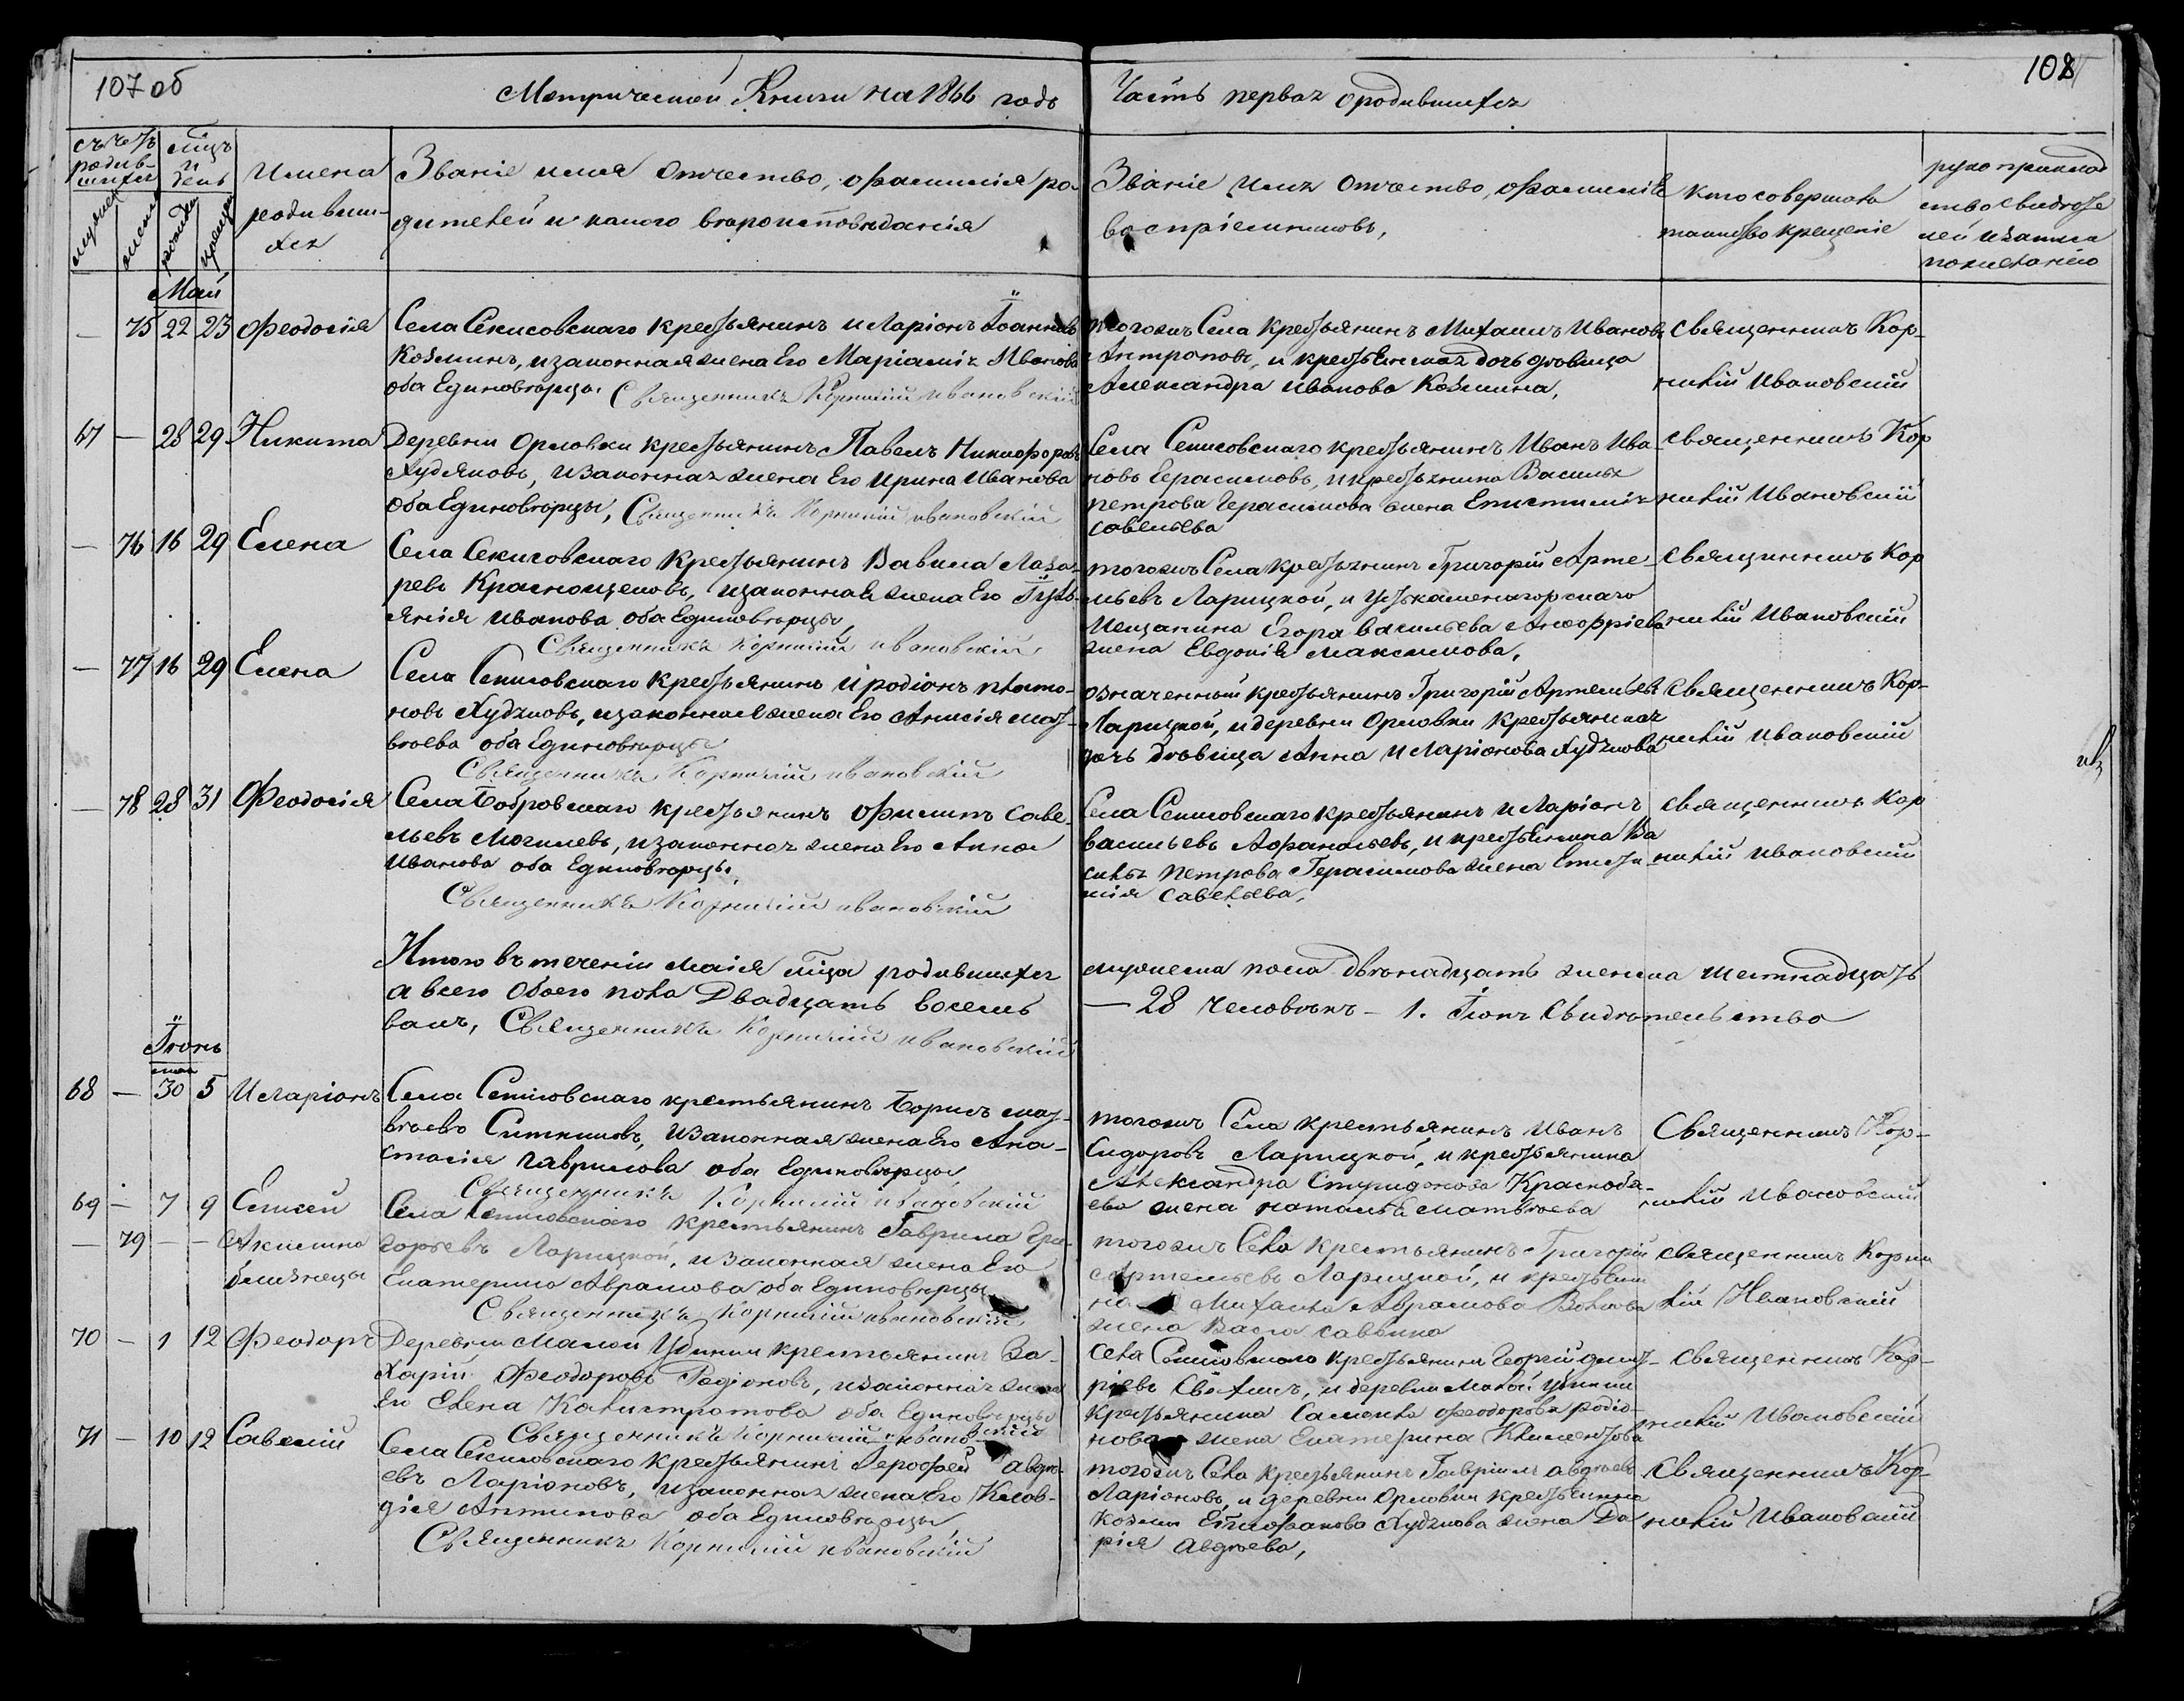 107 об
Метрической Книги на 1866 годъ
Часть первая о родившихся
108
счетъ родив-
шихся
мужеска
женска
мѣцъ
и
день
рожден
крещен
Имена
родивши-
хся
Званіе имя отчество, и фамилія ро-
дителей и какого вѣроисповѣданія
Званіе имя отчество, и фамилія
воспріемниковъ,
кто совершалъ
таинство крещеніе
рукоприклад
ство свидѣте
лей и записи
по желанію
Май
— 75 22 23 Феодосія
Села Секисовскаго крестьянинъ Иларіонъ Іоанновъ
Козминъ, и законная жена Его Маріамія Иванова
оба Единовѣрцы. Священникъ Корнилій Ивановскій
тогожъ Села крестьянинъ Михаилъ Ивановъ
Антроповъ, и крестьянская дочь дѣвица
Александра Иванова Козмина,
Священникъ Кор-
нилій Ивановскій
67 — 28 29 Никита
Деревни Орловки крестьянинъ Павелъ Никифоровъ
Худяковъ, и законная жена Его Ирина Иванова
оба Единовѣрцы, Священникъ Корнилій Ивановскій
Села Секисовскаго крестьянинъ Иванъ Ива-
новъ Герасимовъ, и крестьянина Василья
петрова Герасимова жена Епистимія
Савельева
Священникъ Кор
нилій Ивановскій
— 76 16 29 Елена
Села Секисовскаго крестьянинъ Вавила Лаза-
ревъ Краснощековъ, и законная жена Его Іулі-
янія Иванова оба Единовѣрцы,
Священникъ Корнилій Ивановскій,
тогожъ Села крестьянинъ Григорій Арте-
мьевъ Ларицкой, и Устькаменагорскаго
Мещанина Егора Васильева Анофріева
жена Евдокія Максимова,
Священникъ Кор
нилій Ивановскій
— 77 16 29 Елена
Села Секисовскаго крестьянинъ Иродіонъ плато-
новъ Худяковъ, и законная жена Его Анисія мат-
вѣева оба Единовѣрцы
Священникъ Корнилій Ивановскій
означенный крестьянинъ Григорій Артемьевъ
Ларицкой, и деревни Орловки крестьянская
дочь дѣвица Анна Иларіонова Худякова
Священникъ Кор-
нилій Ивановскій
— 78 28 31 Феодосія
Села Бобровскаго крестьянинъ Филипъ Саве-
льевъ Могилевъ, и законная жена Его Анна
Иванова оба Единовѣрцы,
Священникъ Корнилій Ивановскій
Села Секисовскаго крестьянинъ Иларіонъ
Васильевъ Афанасьевъ, и крестьянина Ва
силья петрова Герасимова жена Еписти-
мія Савельева,
Священникъ Кор
нилій Ивановскій
Итого въ теченіи Маія мѣца родившихся
а всего обоего пола Двадцать восемь
валъ, Священникъ Корнилій Ивановскій
мужеска пола двѣнадцать женска шестнадцать
— 28 человѣкъ — 1. Іюня Свидѣтельство
Іюнь
мая
68 — 30 5 Иларіонъ
Села Секисовскаго крестьянинъ Борисъ мат-
вѣевъ Ситниковъ, и законная жена Его Ана-
стасія гаврилова оба Единовѣрцы,
Священникъ Корнилій Ивановскій
тогожъ Села крестьянинъ Иванъ
Сидоровъ Ларицкой, и крестьянина
Александра Спиридонова Краснобa-
ева жена наталья матвѣева
Священникъ Кор-
нилій Ивановскій
69 — 7 9 Елисей
— 79 — — Акилина
близнецы
Села Секисовскаго крестьянинъ Гаврила Гри-
горьевъ Ларицкой, и законная жена Его
Екатерина Аврамова оба Единовѣрцы
Священникъ Корнилій Ивановскій
тогожъ Села крестьянинъ Григорій
Артемьевъ Ларицкой, и крестьяни
на Михаила Аврамова Волкова
жена Васса саввина
Священникъ Корни
лій Ивановскій
70 — 1 12 Феодоръ
Деревни Малой Убинки крестьянинъ За-
харій Феодоровъ Радіоновъ, и законная жена
Его Елена Калистратова оба Единовѣрцы
Священникъ Корнилій Ивановскій
Села Секисовскаго крестьянинъ Георгій димит-
ріевъ и деревни Малой Убинки
крестьянина Самойла Феодорова родіо-
нова жена Екатерина Климентова
Священникъ Кор-
нилій Ивановскій
71 — 10 12 Савелій
Села Секисовскаго крестьянинъ Іерофей Авдѣ-
евъ Ларіоновъ, и законная жена Его Клав-
дія Антипова оба Единовѣрцы,
Священникъ Корнилій Ивановскій
тогожъ Села крестьянинъ Гавріилъ авдѣевъ
Ларіоновъ, и деревни Орловки крестьянина
Козмы Епифанова Худякова жена Да
рія Авдѣева,
Священникъ Кор
нилій Ивановскій